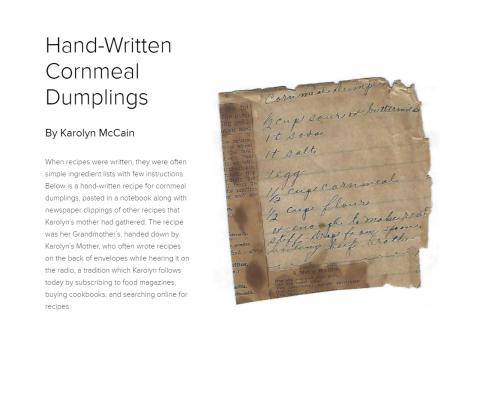 Hand-Written
Cornmeal
Dumplings
By Karolyn McCain
When recipes were written, they were often
simple ingredient lists with few instructions.
Below is a hand-written recipe for cornmeal
dumplings, pasted in a notebook along with
newspaper clippings of other recipes that
Karolyn's mother had gathered. The recipe
was her Grandmother's, handed down by
Karolyn's Mother, who often wrote recipes
on the back of envelopes while hearing it on
the radio, a tradition which Karolyn follows
today by subscribing to food magazines,
buying cookbooks, and searching online for
recipes.
Cornmeal Dump
½ cup sour or buttermilk
1 t soda
1 t salt
1 egg
1½ cups cornmeal
½ cup flour
enough to make real
stiff drops from spoon
boiling beef broth